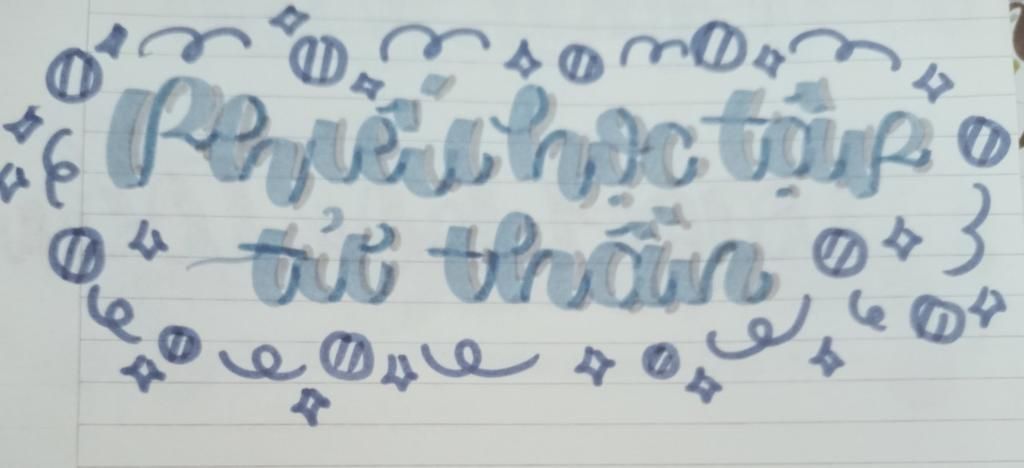 Phiếu học tập
từ thần